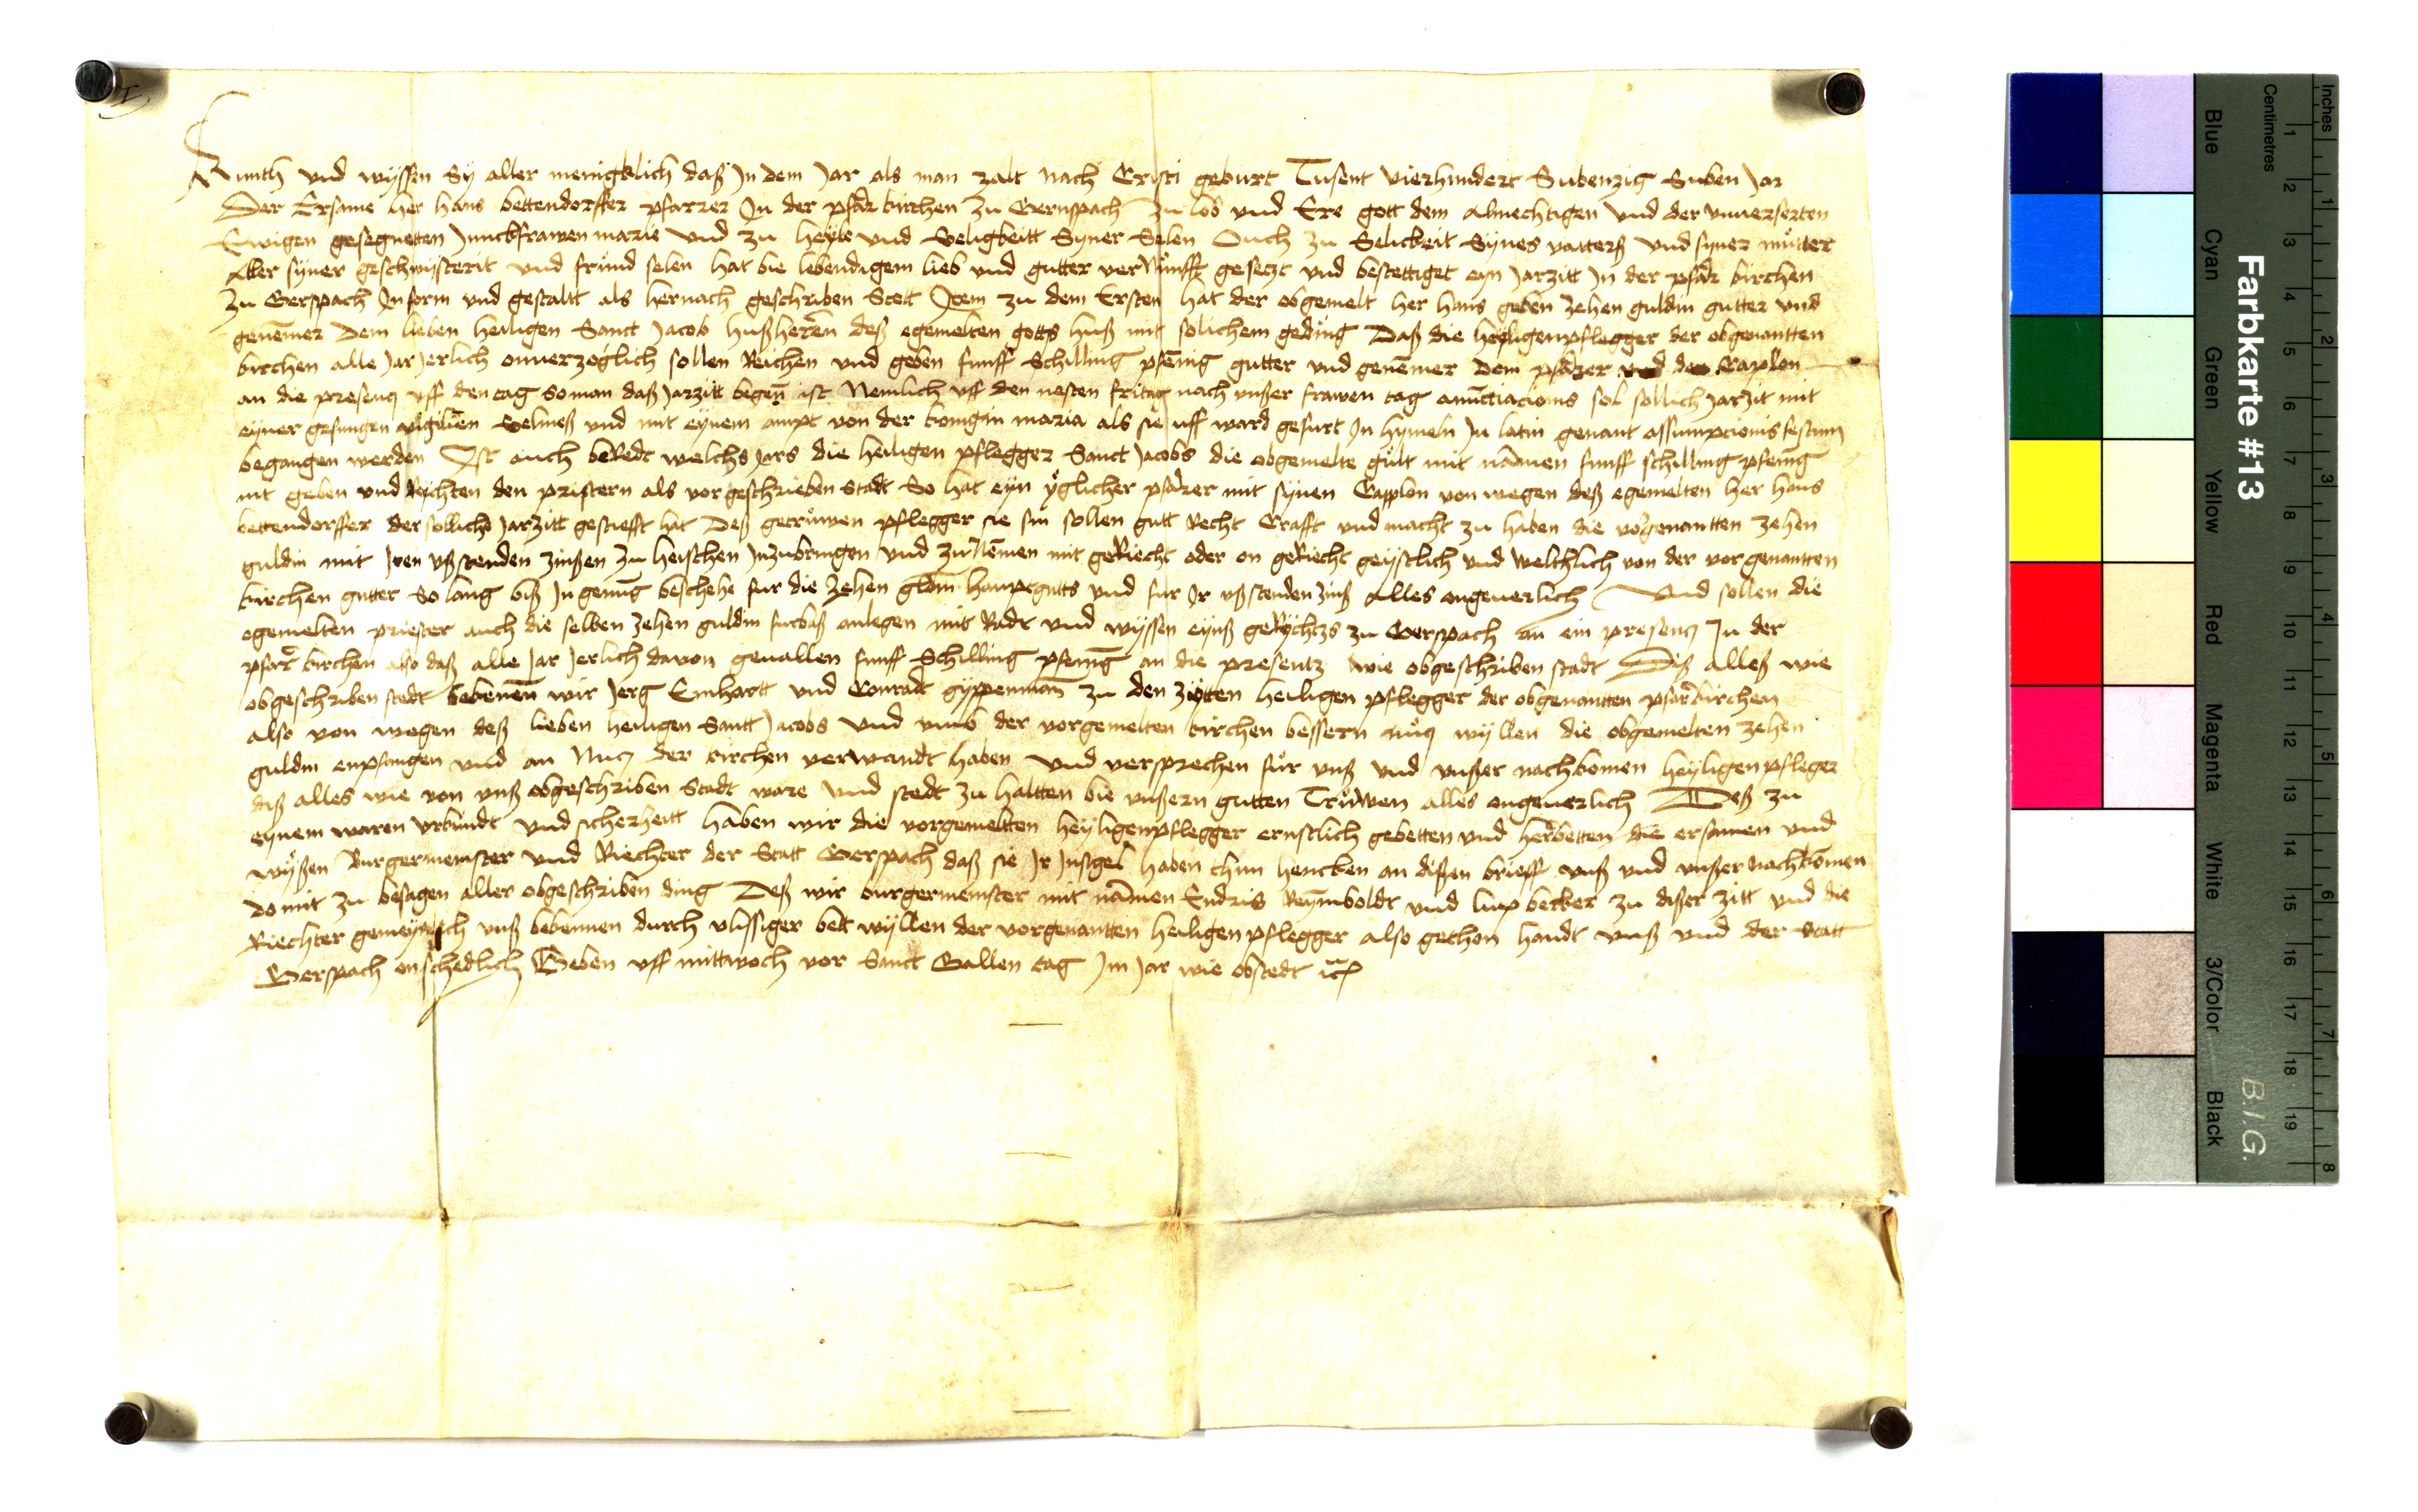 Kunth und wyssen Sy aller menigklich daß jn dem jar als man zalt nach Cristi geburt Tusent vierhundert Subenzig Suben jar
Der Ersame her hans bettendorffer pfarrer jn der pfarr kirchen zu Gernspach zu lob und Ere gott dem almechtigen und der unverserten
Ewigen gesegnetten junckfrawen marie und zu heyle und Seligkeitt Syner Selen Ouch zu Selickeit Synes vatterß und syner mutter
Aller syner geschwysterit und frund selen hat bie lebendigem lieb und gutter vernunfft gesetzt und bestettiget eyn jarzitt jn der pfarr kirchen
zu Gerspach jn form und gestaltt als hernach geschriben Stett Jtem zu dem Ersten hat der obgemelt her hans geben zehen guldin gutter und
genemer dem lieben heiligen Sanct jacob hußheren deß egemelten gotts huß mit solichem geding Daß die heyligenpflegger der obgenantten
kirchen alle jar jerlich onverzoglich sollen Reichen und geben funff Schilling pfenig gutter und genemer dem pfarrer und den Caplon
an die presentz uff den tag so man daß jarzitt begen ist Nemlich uff den nesten fritag nach unßer frawen tag anunctiacionis sol sollich jarzit mit
eyner gesungen vigilien Selmeß und mit eynem ampt von der konigin maria als sie uff ward gefurt jn hymeln jn latin genant assumpcionis festum
begangen werden Jst auch beRedt welchs jars die heiligen pflegger Sanct jacobs die obgemelte gult mit namen funff schilling pfenig
nit geben und Rychten den pristern als vor geschrieben Stadt So hat eyn yglicher pfarrer mit synen Capplon von wegen deß egemelten her hans
bettendorffer der sollichs jarzitt gestiefft hat Deß getruwen pflegger sie sin sollen gutt Recht Crafft und macht zu haben die vorgenantten zehen
guldin mit jren ußstenden zinßen zu heischen jnzubringen und zu Nemen mit geRiecht oder on geRiecht geystlich und weltlich von der vorgenantten
kirchen gutter So lang biß jn genug beschehe fur die zehen gldin hauptgutts und fur jr ußstenden zinß Alles ongeuerlich Und sollen die
egemelten priester auch die selben zehen guldin furbaß anlegen mit Radt und wyssen eynß geRychtzs zu Gerspach an ein presentz jn der
pfarr kirchen also daß alle jar jerlich davon geuallen funff Schilling pfenig an die presentz wie obgeschriben stadt Diß alleß wie
obgeschriben stedt bekenen wir jerg Einhartt und Conradt gyppenman zu den zytten heiligen pflegger der obgenantten pfarrkirchen
also von wegen deß lieben heiligen Santt jacobs und umb der vorgemelten kirchen bessern nutz wyllen die obgemelten zehen
guldin enpfangen und an Nutz der kirchen verwandt haben und versprechen fur unß und unßer nachkomen heyligenpfleger
diß alles wie von unß obgeschriben Stadt ware und stedt zu haltten bie unßern gutten Truwen alles ongeuerlich Deß zu
eynem waren urkundt und sicherheitt haben wir die vorgemeltten heyligenpflegger ernstlich gebetten und herbetten die ersamen und
wyßen Burgermeinster und Riechter der Statt Gerspach daß sie jr jnsigel haben thun hencken an dißen brieff unß und unßer nachkomen
do mit zu besagen aller obgeschriben ding Deß wir burgermeinster mit namen Endris Reymboldt und becker zu dißer zitt und die
Riechter gemeynlich unß bekennen durch vlissiger bett wyllen der vorgenantten heiligen pflegger also gethon handt unß und der Statt
Gerspach onschedlich Geben uff mittwoch vor Sanct Gallen tag jm jar wie obstedt
Farbkarte #13
B.I.G.
Inches 1 2 3 4 5 6 7 8
Centimetres 1 2 3 4 5 6 7 8 9 10 11 12 13 14 15 16 17 18 19
Blue Cyan Green Yellow Red Magenta White 3/Color Black